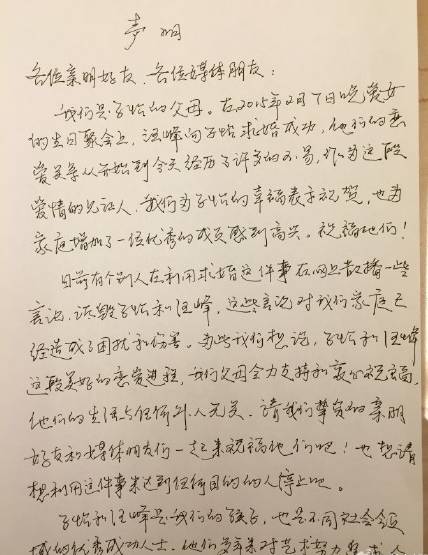 声明
各位亲朋好友、各位媒体朋友：
我们是子怡的父母。在2015年2月7日晚爱女
的生日聚会上，汪峰向子怡求婚成功，他们的恋
爱关系从开始到今天经历了许多的不易，作为这段
爱情的见证人，我们为子怡的幸福表示祝贺，也为
家庭增加了一位优秀的成员感到高兴。祝福他们！
目前有个别人在利用求婚这件事在网上散播一些
言论，诋毁子怡和汪峰，这些言论对我们家庭已
经造成了困扰和伤害。为此我们想说，子怡和汪峰
这段美好的恋爱进程，我们父母全力支持和衷心祝福，
他们的生活与任何外人无关，请我们挚爱的亲朋
好友和媒体朋友们一起来祝福他们吧！也想请
想利用这件事来达到任何目的的人停止吧。
子怡和汪峰是我们的孩子，也是不同社会领
域的优秀成功人士，他们多年来对艺术努力